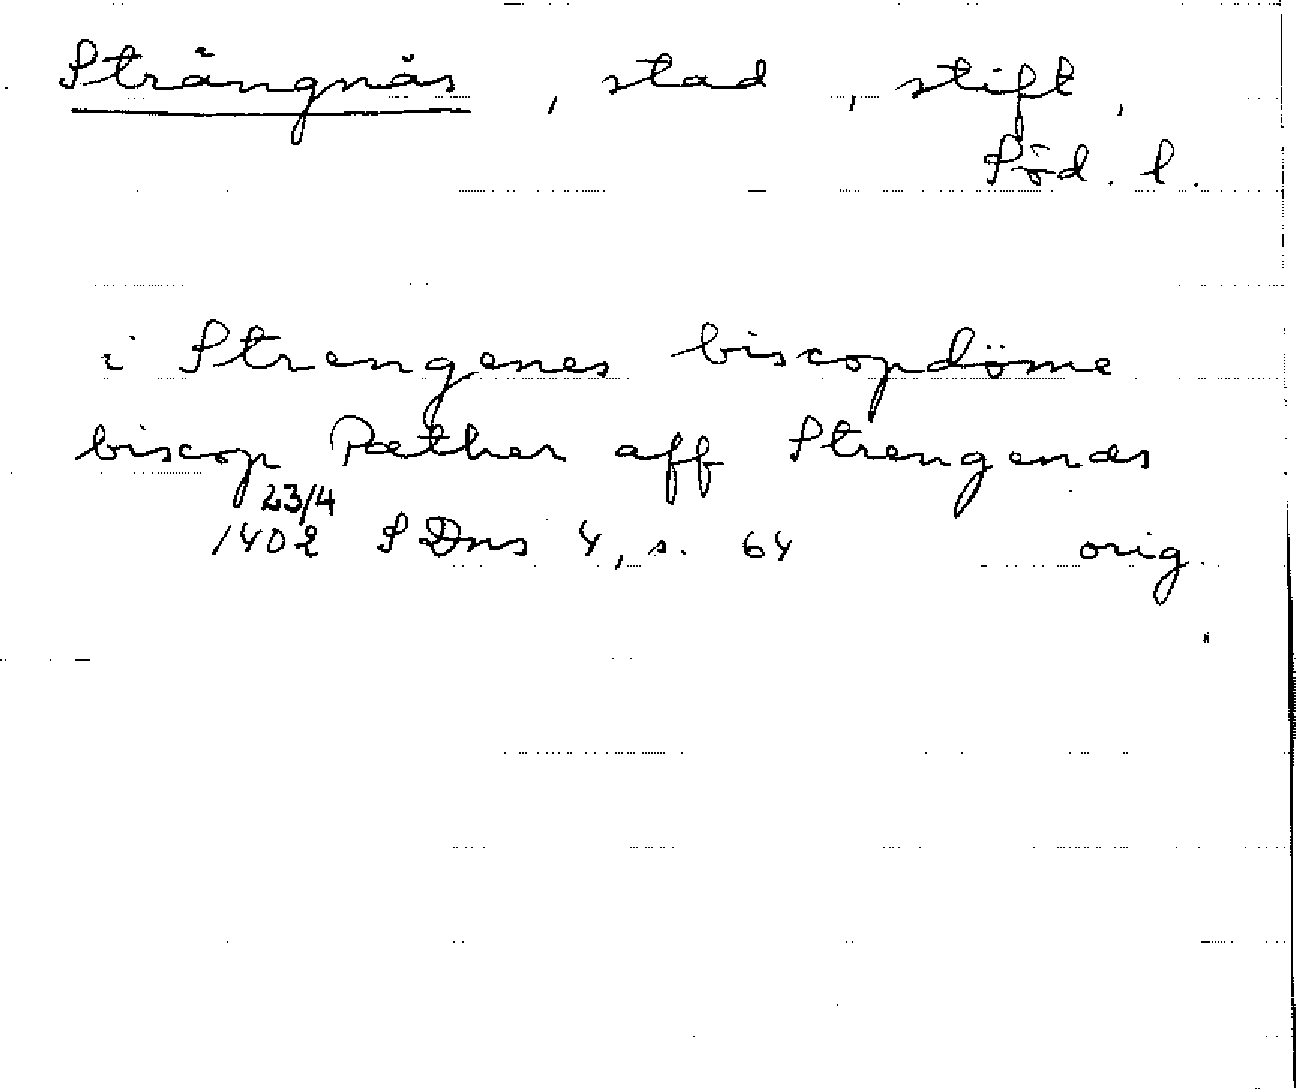 Strängnäs, stad, stift,
Söd. l.
i Strengenes biscopdöme
biscop Pæther aff Strengenæs
23/4
1402 SDns 4, s. 64 orig.